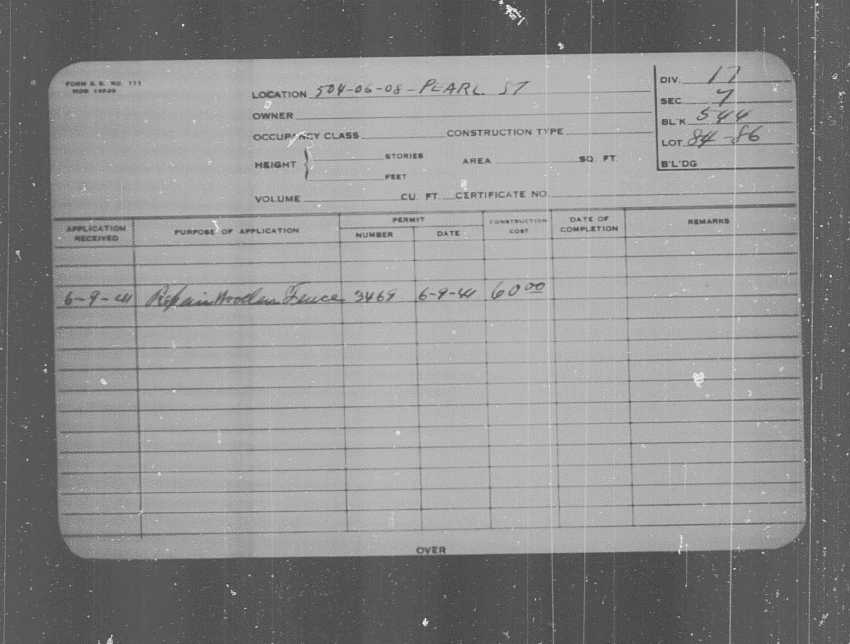 FORM B. B. NO. 111
LOCATION 504-06-08-PEARL ST
DIV. 17
SEC 7
OWNER
BL'K 544
OCCUPANCY CLASS CONSTRUCTION TYPE
LOT 84-86
HEIGHT STORIES AREA SQ. FT.
FEET
B'L'DG
VOLUME CU. FT. CERTIFICATE NO.
APPLICATION RECEIVED PURPOSE OF APPLICATION PERMIT NUMBER DATE CONSTRUCTION COST DATE OF COMPLETION REMARKS
6-9-41 Repair Wooden Fence 3469 6-9-41 60 00
OVER